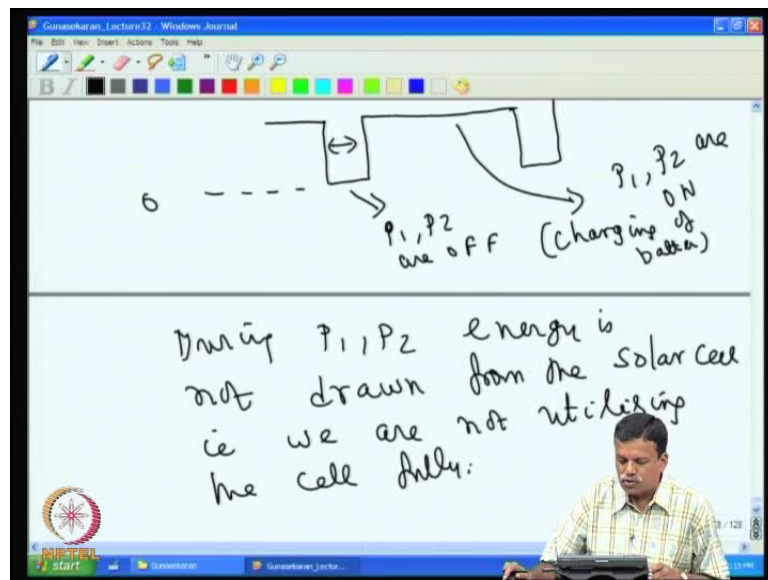 Gunasekaran_Lecture32 - Windows Journal
File Edit View Insert Actions Tools Help
B I
0
P1, P2
are OFF
P1, P2 are
ON
(Charging of
battery)
During P1, P2 energy is
not drawn from the solar cell
ie we are not utilising
the cell fully.
NPTEL
start
Gunasekaran
Gunasekaran_Lectur...